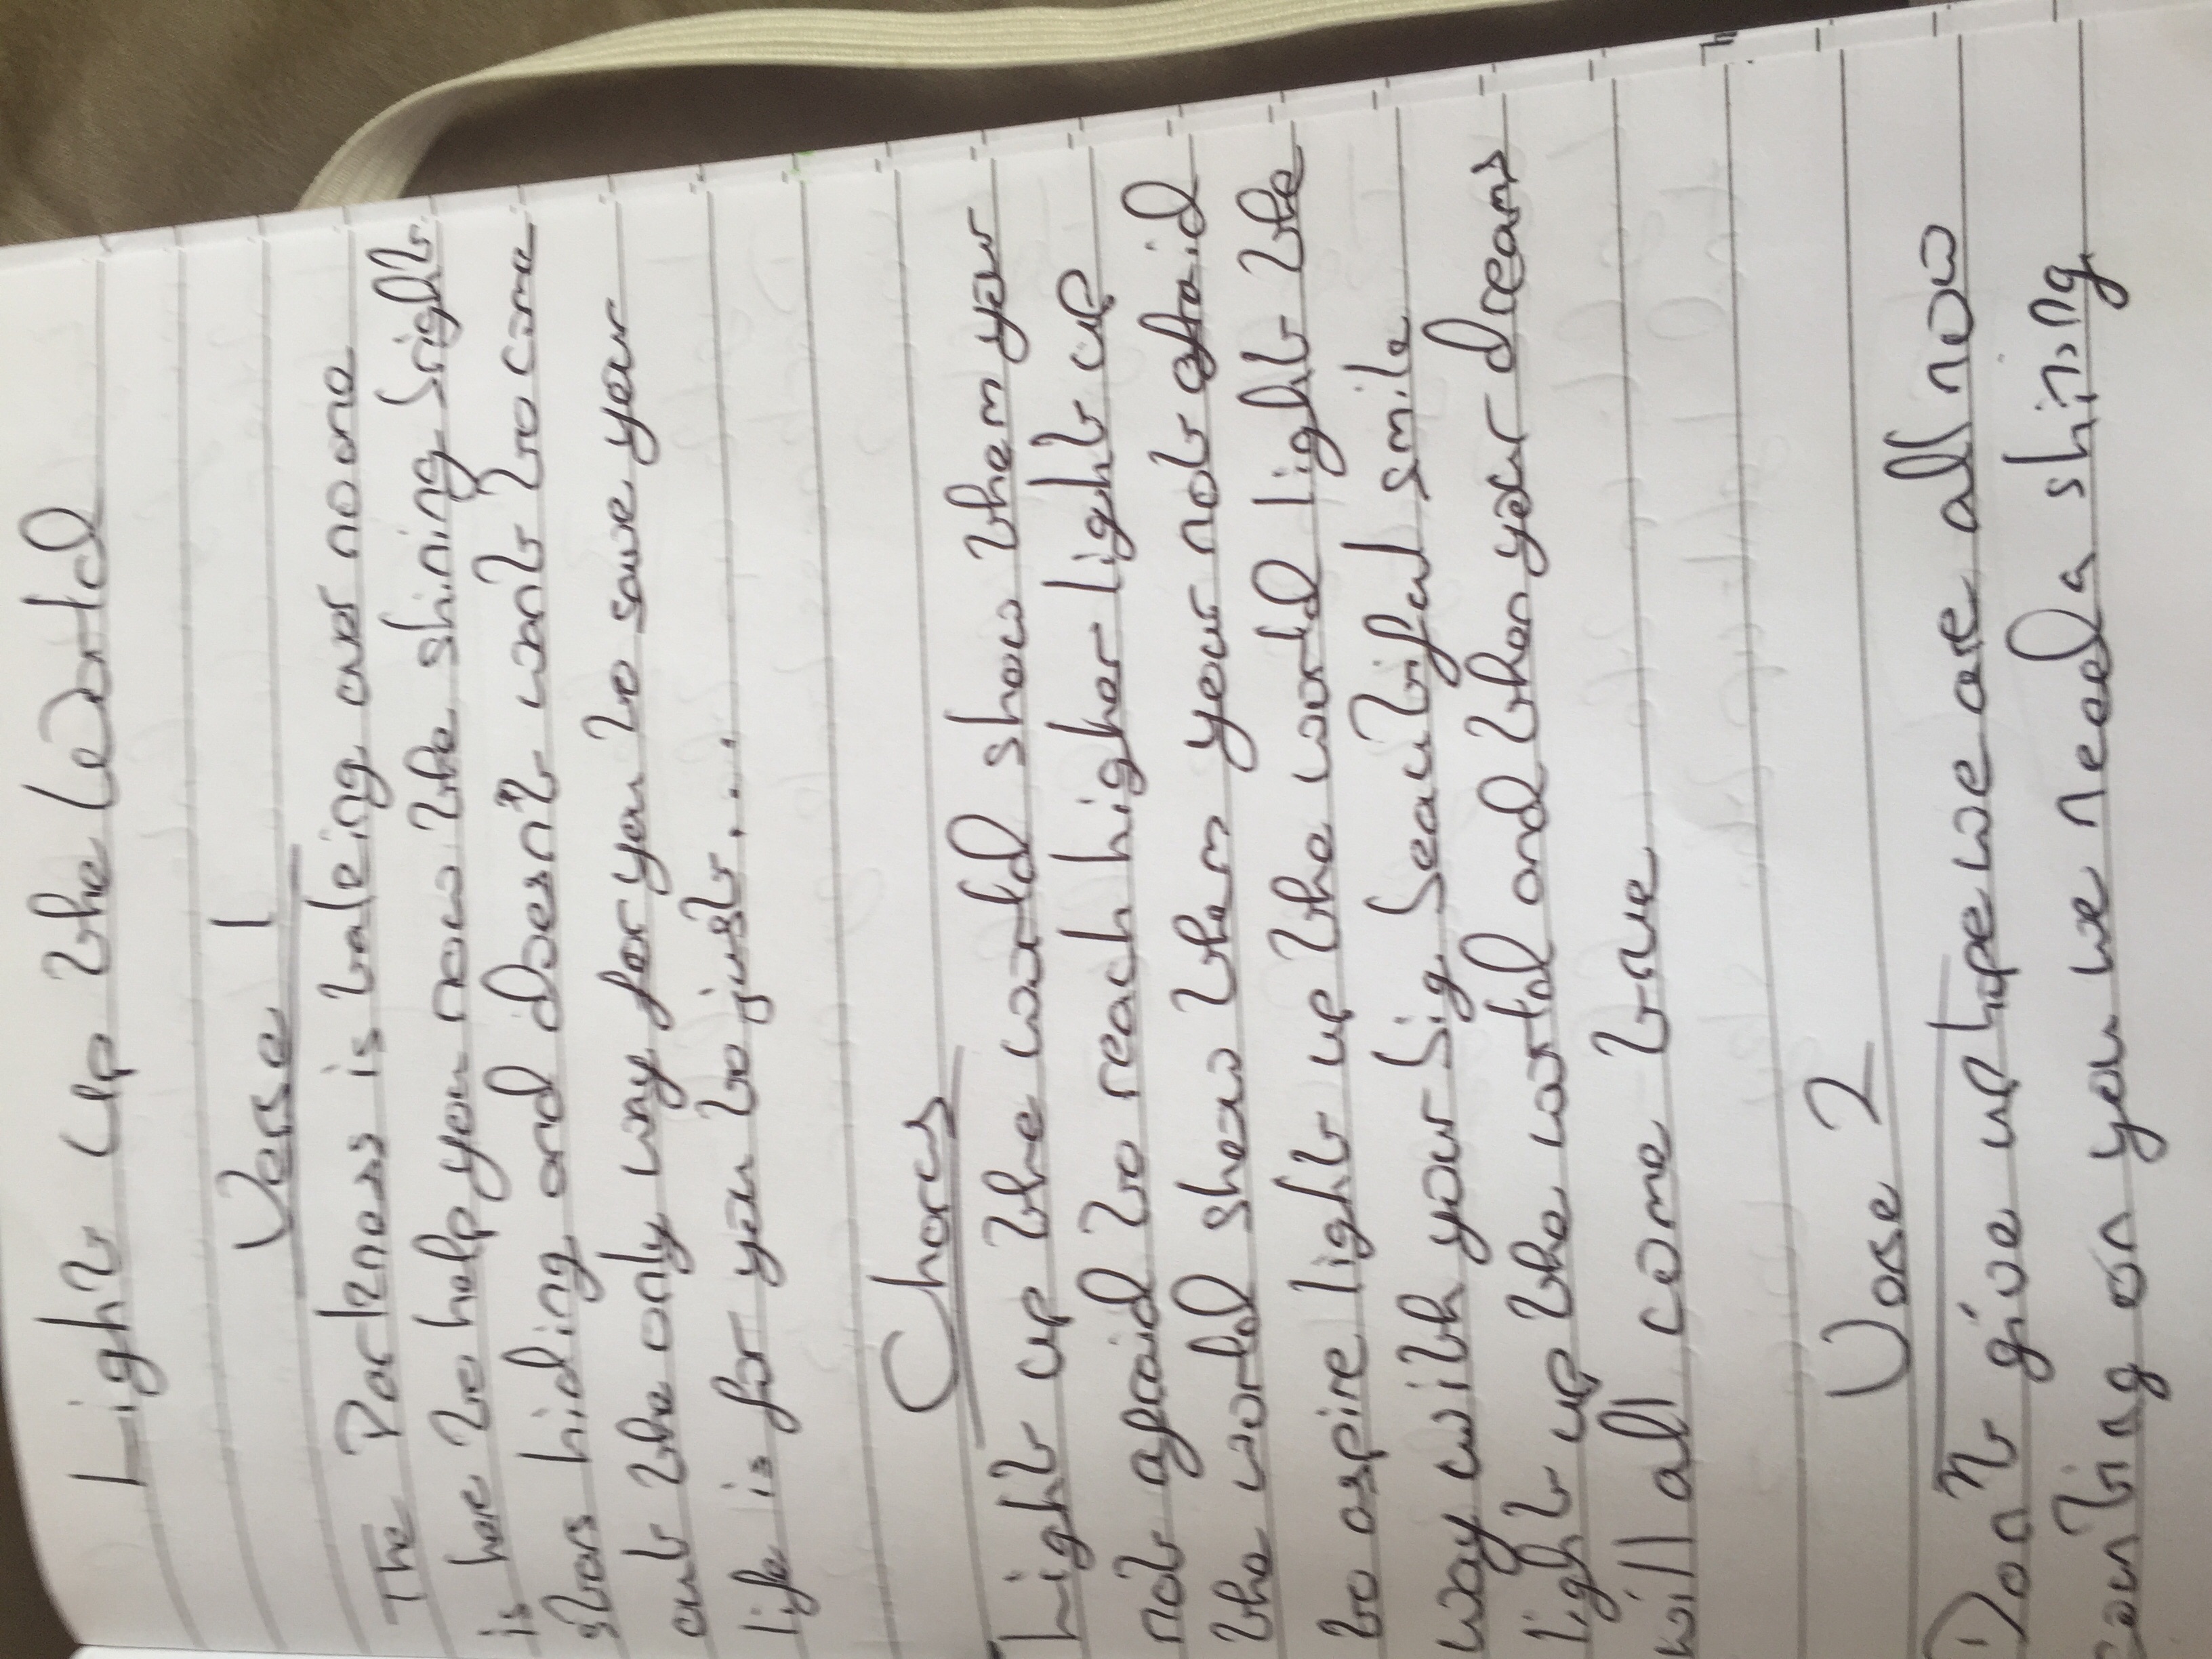 Light up the World
Verse 1
The Darkness is takeing over no one
is here to help you now the shining bright
stars hiding and doesn't want to come
out the only way for you to save your
life is for you to just....
Chorus
Light up the world show them your
not afraid to reach higher light up
the world show them your not afraid
to aspire light up the world light the
way with your big beautiful smile
light up the world and then your dreams
will all come true
Verse 2
Don't give up hope we are all now
counting on you we need a shining